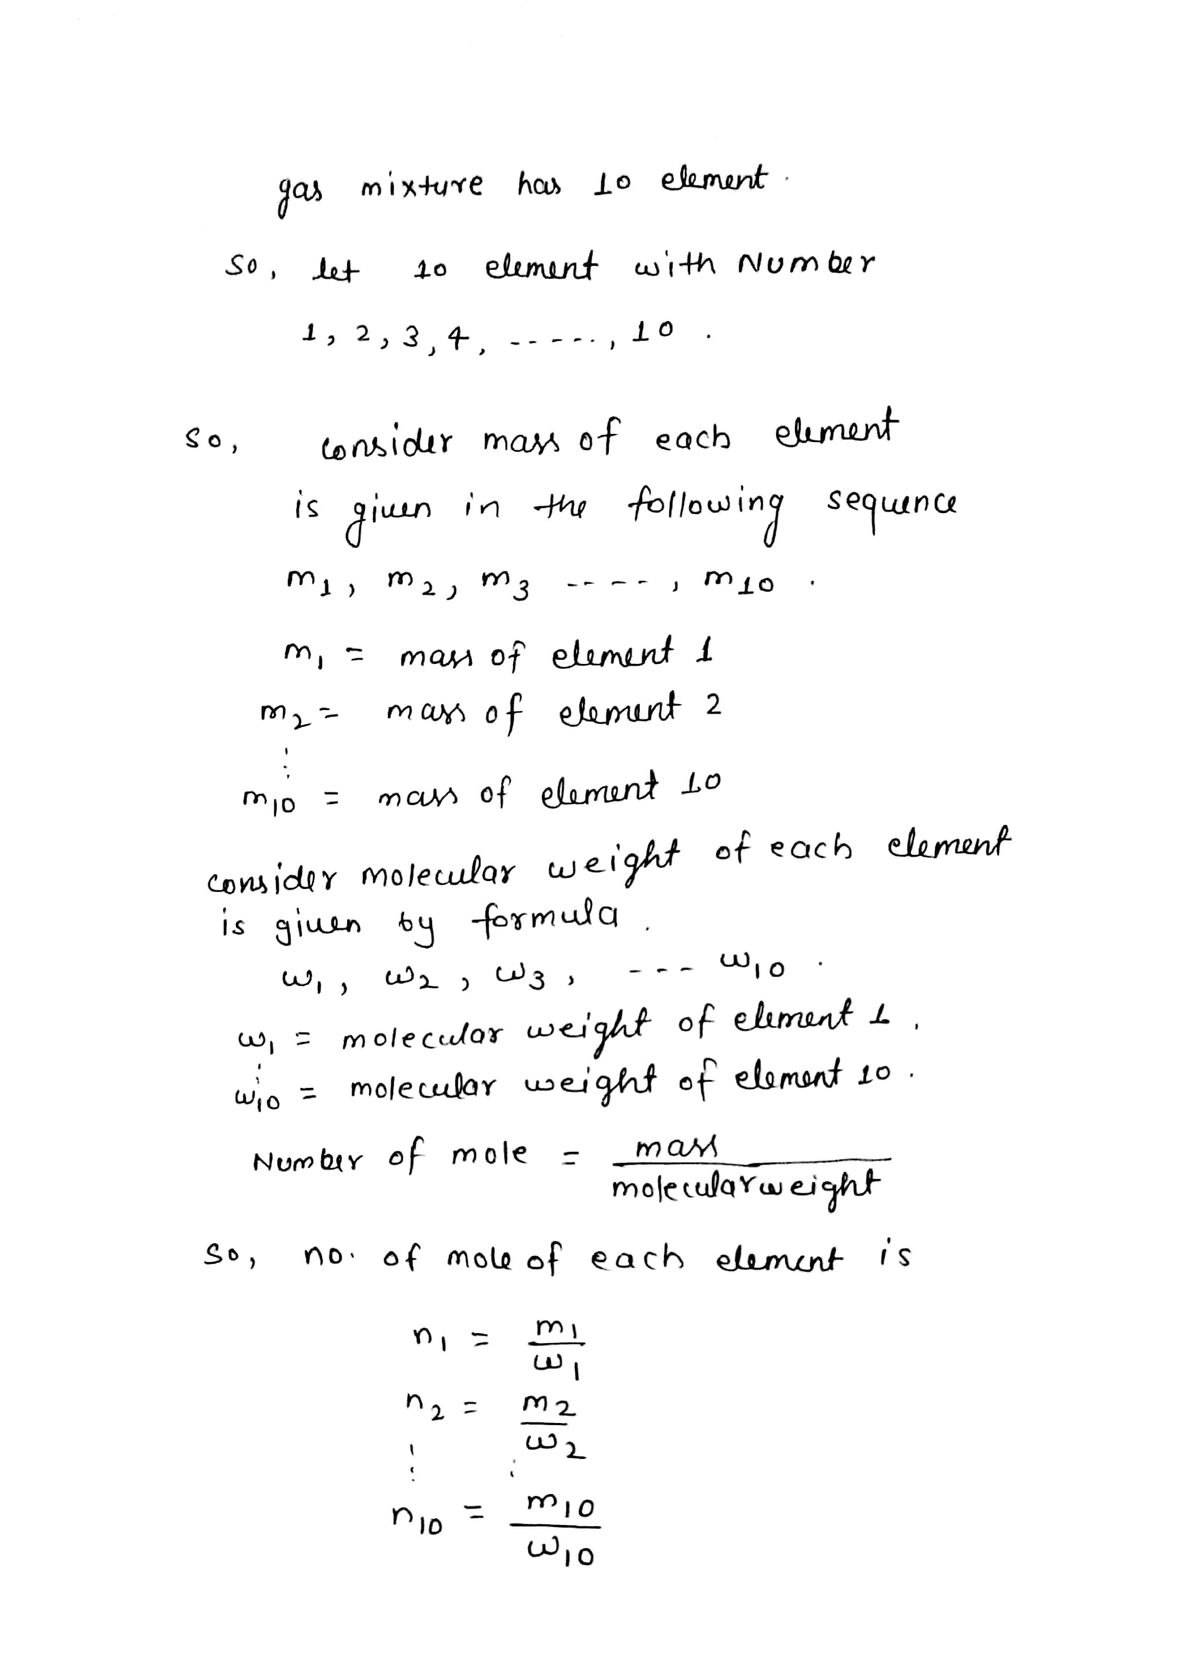 gas mixture has 10 element.
So, let 10 element with Number
1, 2, 3, 4, ------, 10 .
So, consider mass of each element
is given in the following sequence
m₁, m₂, m₃ -----, m₁₀ .
m₁ = mass of element 1
m₂ = mass of element 2
⋮
m₁₀ = mass of element 10
consider molecular weight of each element
is given by formula .
ω₁, ω₂, ω₃, --- ω₁₀ .
ω₁ = molecular weight of element 1 .
⋮
ω₁₀ = molecular weight of element 10 .
Number of mole = mass / molecular weight
So, no. of mole of each element is
n₁ = m₁ / ω₁
n₂ = m₂ / ω₂
⋮ ⋮
n₁₀ = m₁₀ / ω₁₀